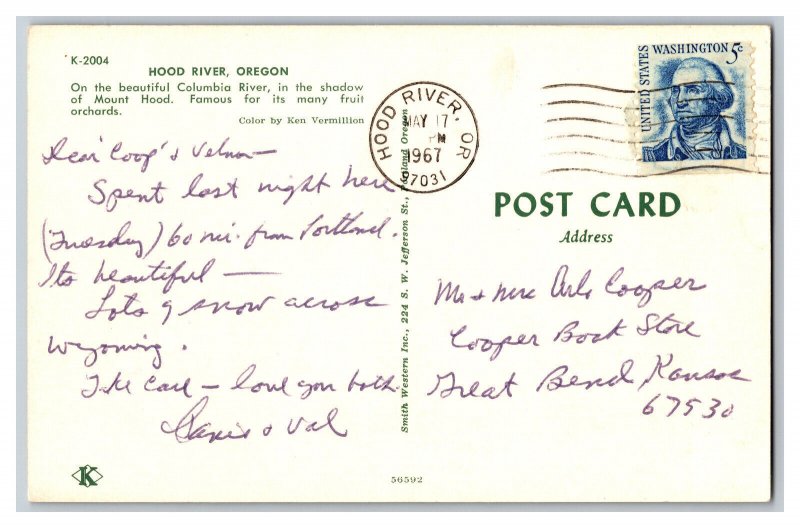 K-2004
HOOD RIVER, OREGON
On the beautiful Columbia River, in the shadow
of Mount Hood. Famous for its many fruit
orchards.
Color by Ken Vermillion
Dear Coop's & Velma—
Spent last night here
(Tuesday) 60 mi. from Portland.
Its beautiful —
Lots of snow across
Wyoming.
Take care — love you both.
& Val
K
Smith Western Inc., 224 S. W. Jefferson St., Portland Oregon
56592
HOOD RIVER, OR
MAY 17
PM
1967
97031
UNITED STATES
WASHINGTON 5c
POST CARD
Address
Mr & Mrs Cooper
Cooper Book Store
Great Bend Kansas
67530